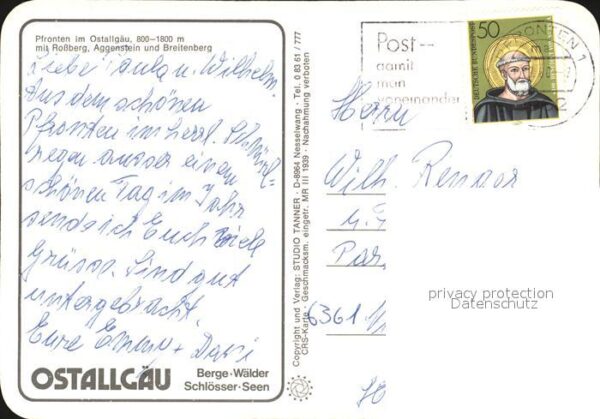 Pfronten im Ostallgäu, 800–1800 m
mit Roßberg, Aggenstein und Breitenberg
Liebe Paula u. Wilhelm,
Aus dem schönen
Pfronten im
regen ausser einen
schönen Tag im Jahr
sende ich Euch viele
Grüsse. Sind gut
untergebracht.
Eure +
OSTALLGÄU
Berge·Wälder
Schlösser·Seen
Copyright und Verlag: STUDIO TANNER · D-8964 Nesselwang · Tel. 0 83 61 / 777
CRS-Karte · Geschmacksm. eingetr. MR III 1939 · Nachahmung verboten
Post--
damit
man
voneinander
ONTEN 1
50
DEUTSCHE BUNDESPOST
Herrn
Wilh.
6361
privacy protection
Datenschutz